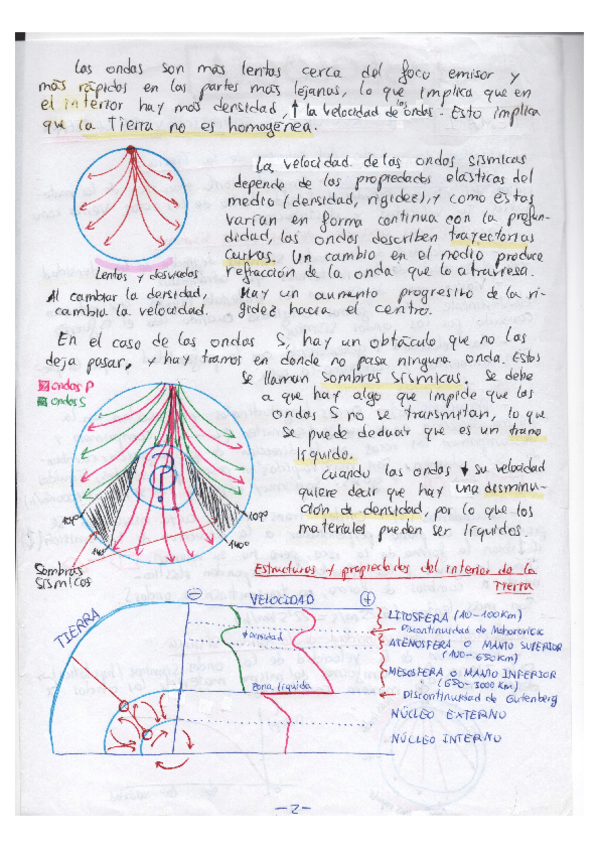 Las ondas son más lentas cerca del foco emisor y
más rápidos en las partes más lejanas, lo que implica que en
el interior hay más densidad, ↑ la velocidad de las ondas. Esto implica
que la Tierra no es homogénea.
La velocidad de las ondas sísmicas
depende de las propiedades elásticas del
medio (densidad, rigidez), y como éstas
varían en forma continua con la profun-
didad, las ondas describen trayectorias
curvas. Un cambio en el medio produce
refracción de la onda que lo atraviesa.
Hay un aumento progresivo de la ri-
gidez hacia el centro.
Lentas y desviadas
Al cambiar la densidad,
cambia la velocidad.
En el caso de las ondas S, hay un obstáculo que no las
deja pasar, y hay tramos en donde no pasa ninguna onda. Estos
se llaman sombras sísmicas. Se debe
a que hay algo que impide que las
ondas S no se transmitan, lo que
se puede deducir que es un tramo
líquido.
Cuando las ondas ↓ su velocidad
quiere decir que hay una disminu-
ción de densidad, por lo que los
materiales pueden ser líquidos.
ondas P
ondas S
?
109º
109º
140º
140º
Sombras
sísmicas
Estructuras y propiedades del interior de la
Tierra
TIERRA
⊖ VELOCIDAD ⊕
↑ densidad
Zona líquida
LITOSFERA (10-100Km)
Discontinuidad de Mohorovicic
ATENOSFERA O MANTO SUPERIOR
(100-650Km)
MESOSFERA O MANTO INFERIOR
(650-3000Km)
Discontinuidad de Gutenberg
NÚCLEO EXTERNO
NÚCLEO INTERNO
-2-